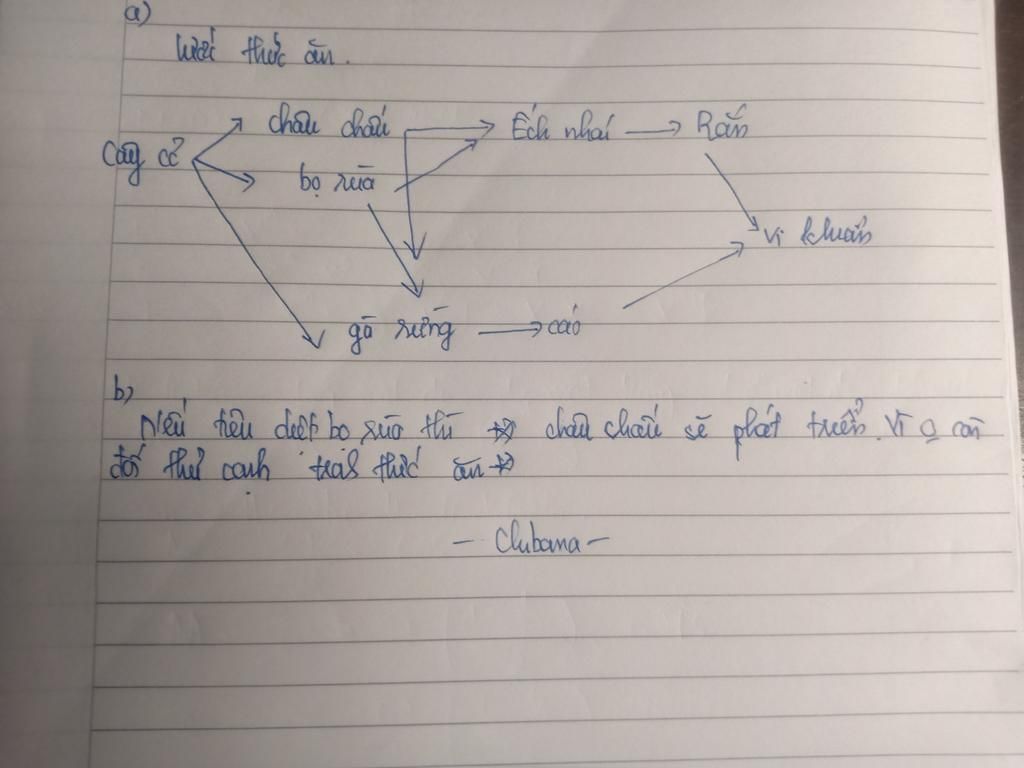 a)
lưới thức ăn.
châu chấu
Ếch nhái
Rắn
Cây cỏ
bọ rùa
vi khuẩn
gà rừng
cáo
b)
Nếu tiêu diệt bọ rùa thì châu chấu sẽ phát triển. Vì o còn
đối thủ cạnh tranh thức ăn
- Clubana -